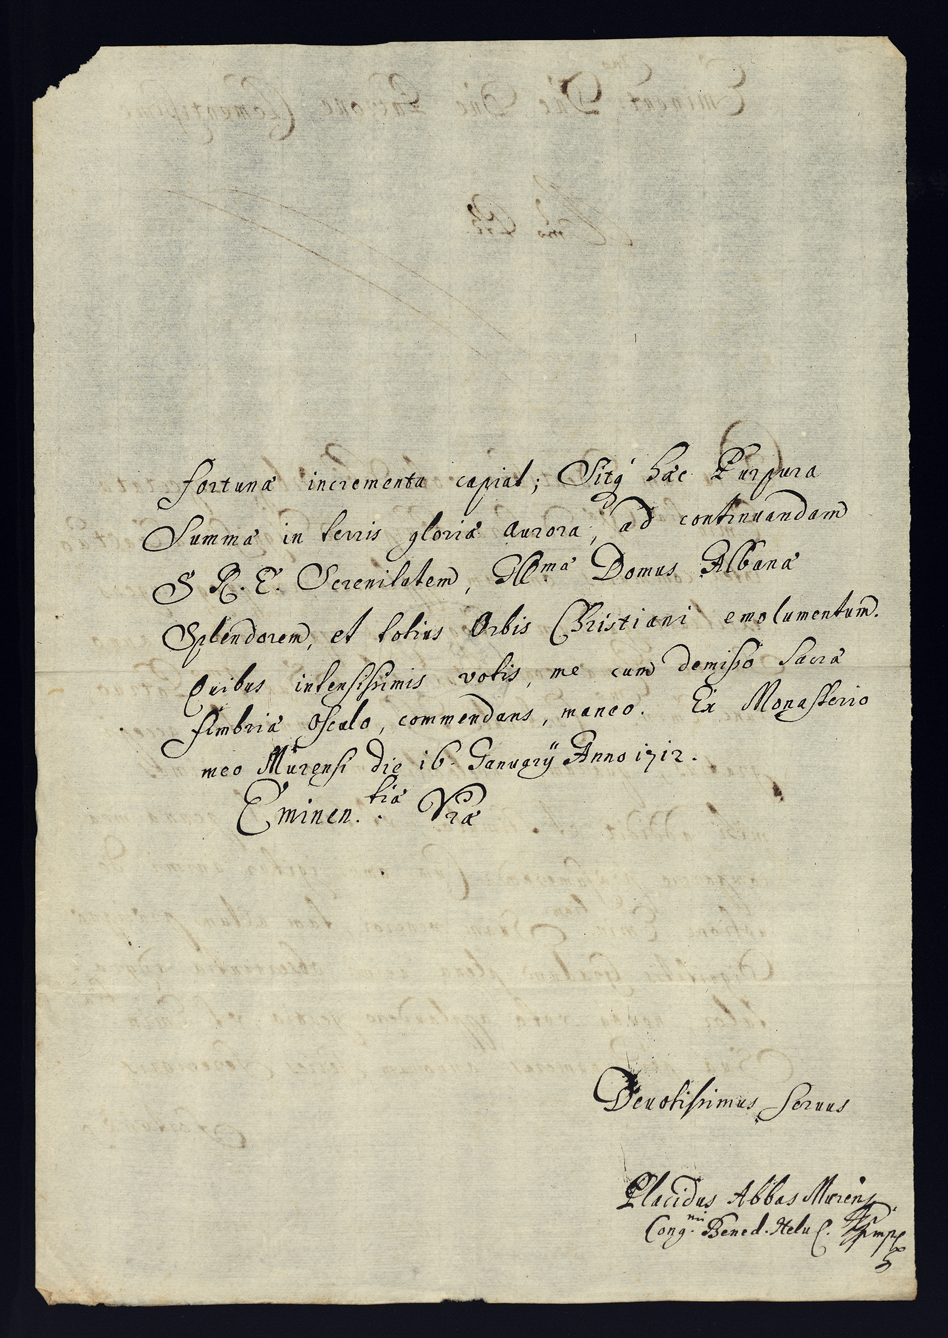 fortunæ incrementa capiat; Sitq́ hæc Purpura
Summæ in terris gloriæ aurora, ad continuandam
S. R. E. Serenitatem, Illmæ Domus Albanæ
Splendorem, et totius Orbis Christiani emolumentum.
Quibus intensissimis votis, me cum demisso Sacræ
fimbriæ osculo, commendans, maneo. Ex Monasterio
meo Murensi die 16. Januarÿ Anno 1712.
Eminen.tiæ Vræ
Devotissimus Servus
Placidus Abbas Murens
Cong.nis Bened. Helv.